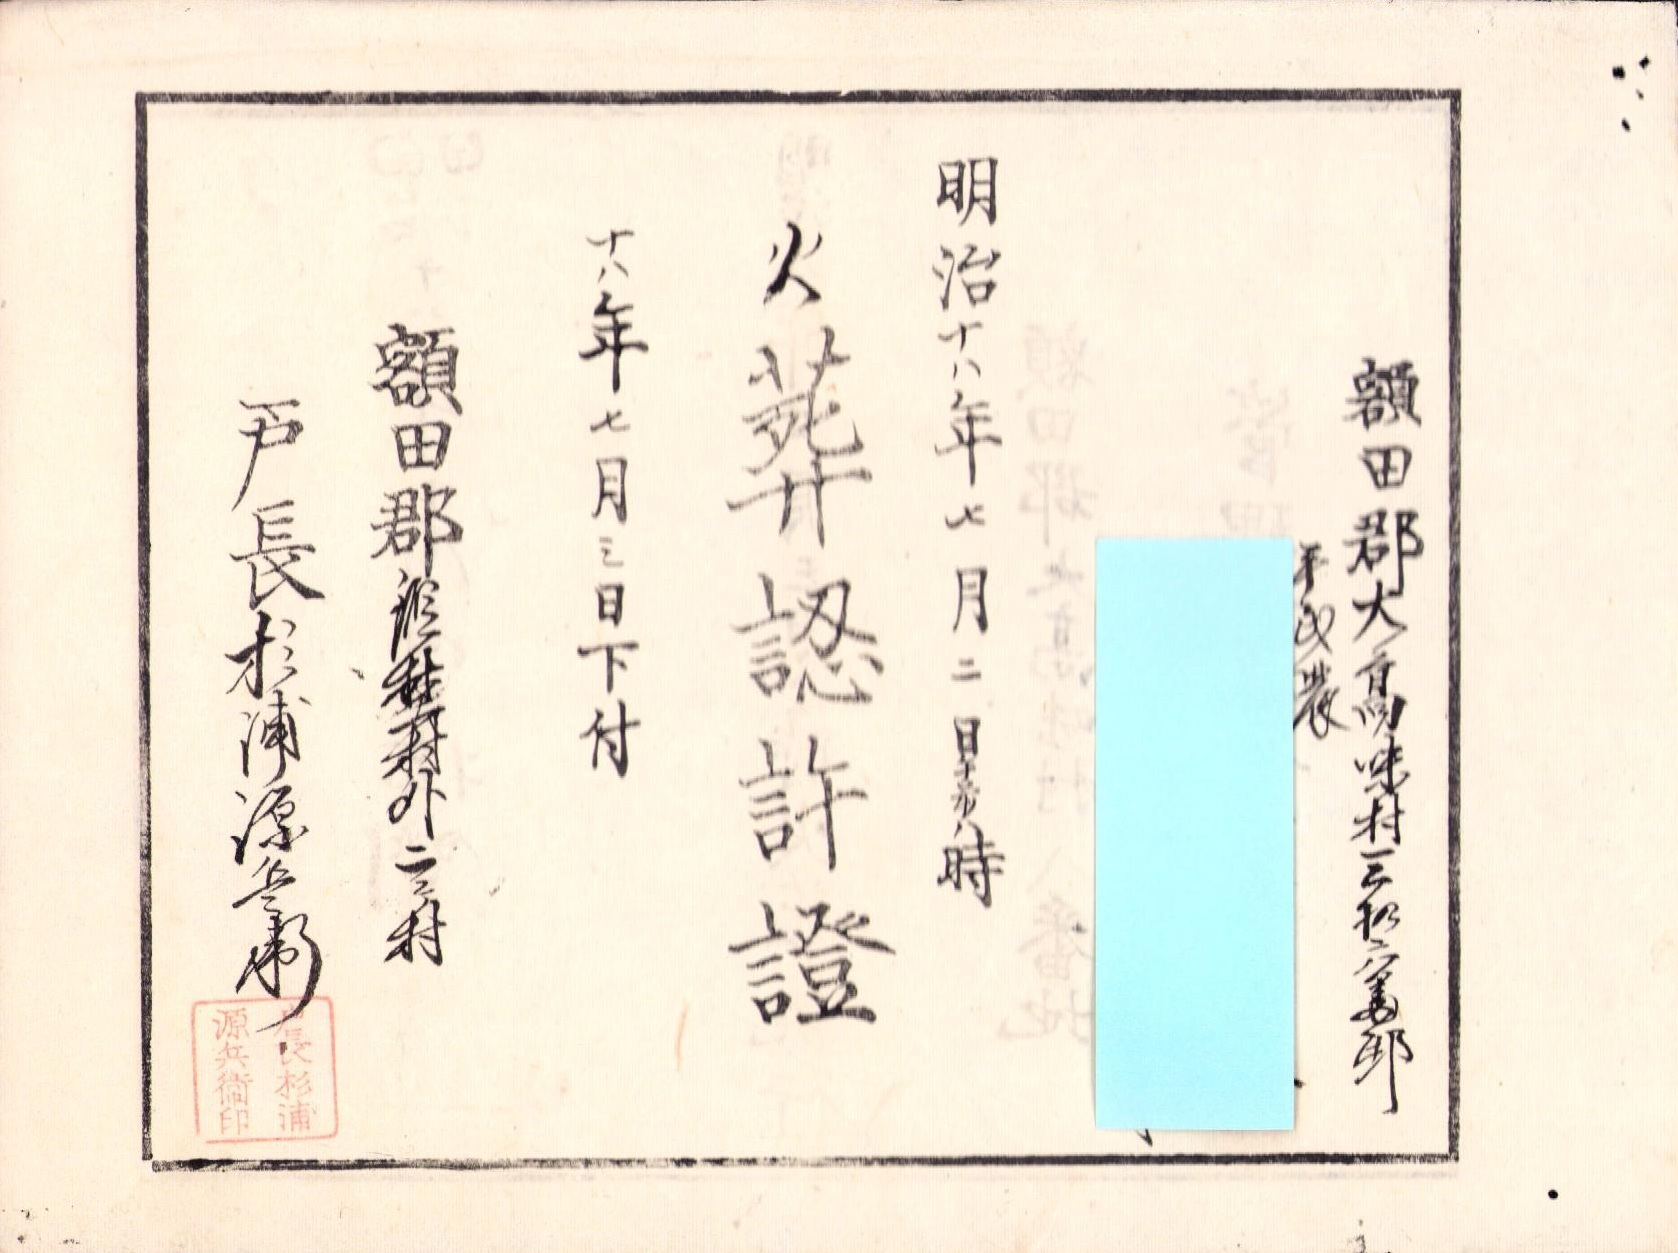 額田郡大高味村三拾六番邸
平民農
明治十八年七月二日午后八時
火葬認許證
十八年七月三日下付
額田郡 村外二ヶ村
戸長杉浦源兵衛
戸長杉浦
源兵衛印